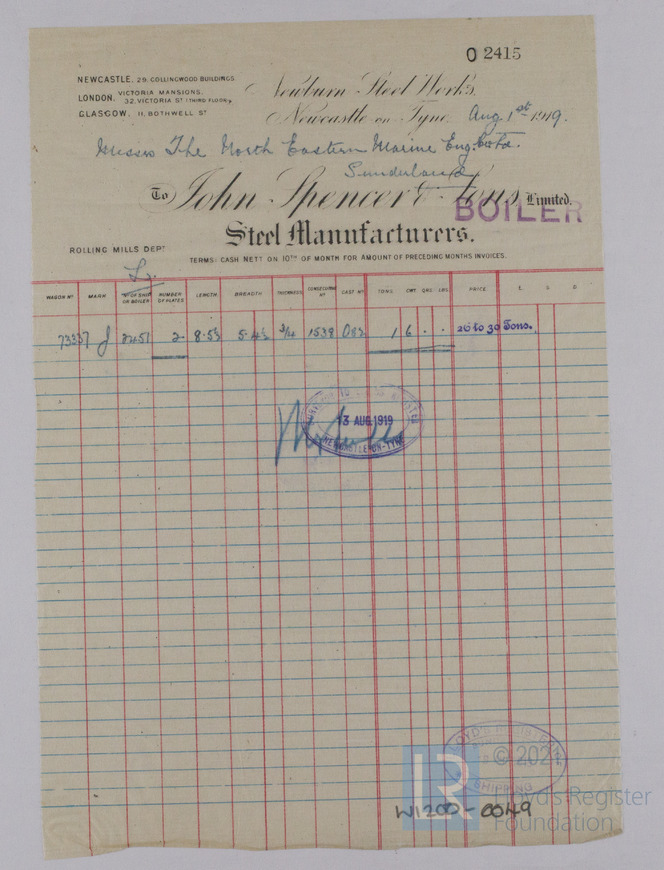 O 2415
NEWCASTLE. 29, COLLINGWOOD BUILDINGS
LONDON. VICTORIA MANSIONS,
32, VICTORIA ST (THIRD FLOOR)
GLASGOW. 11, BOTHWELL ST
Newburn Steel Works,
Newcastle on Tyne, Aug 1st 1919.
Messrs The North Eastern Marine Eng. Co Ltd.
Sunderland
To John Spencer & Sons, Limited,
BOILER
Steel Manufacturers.
ROLLING MILLS DEPT
TERMS: CASH NETT ON 10TH OF MONTH FOR AMOUNT OF PRECEDING MONTHS INVOICES.
WAGON No MARK No OF SHIP OR BOILER NUMBER OF PLATES LENGTH BREADTH THICKNESS CONSECUTIVE No CAST No TONS CWT QRS LBS PRICE £ S D
73337 2451 2 8.5½ 5.4½ 3/4 1538 083 1 6 . . 26 to 30 Tons.
13 AUG 1919
NEWCASTLE-ON-TYNE
LLOYD'S REGISTER
SHIPPING
© 2021
LR
Lloyd's Register
Foundation
W1200-0049